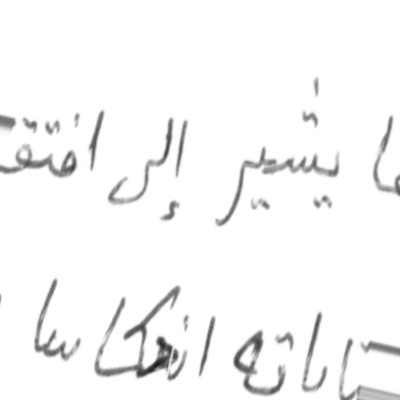 ما يشير إلى افتق
اباته انعكاسا